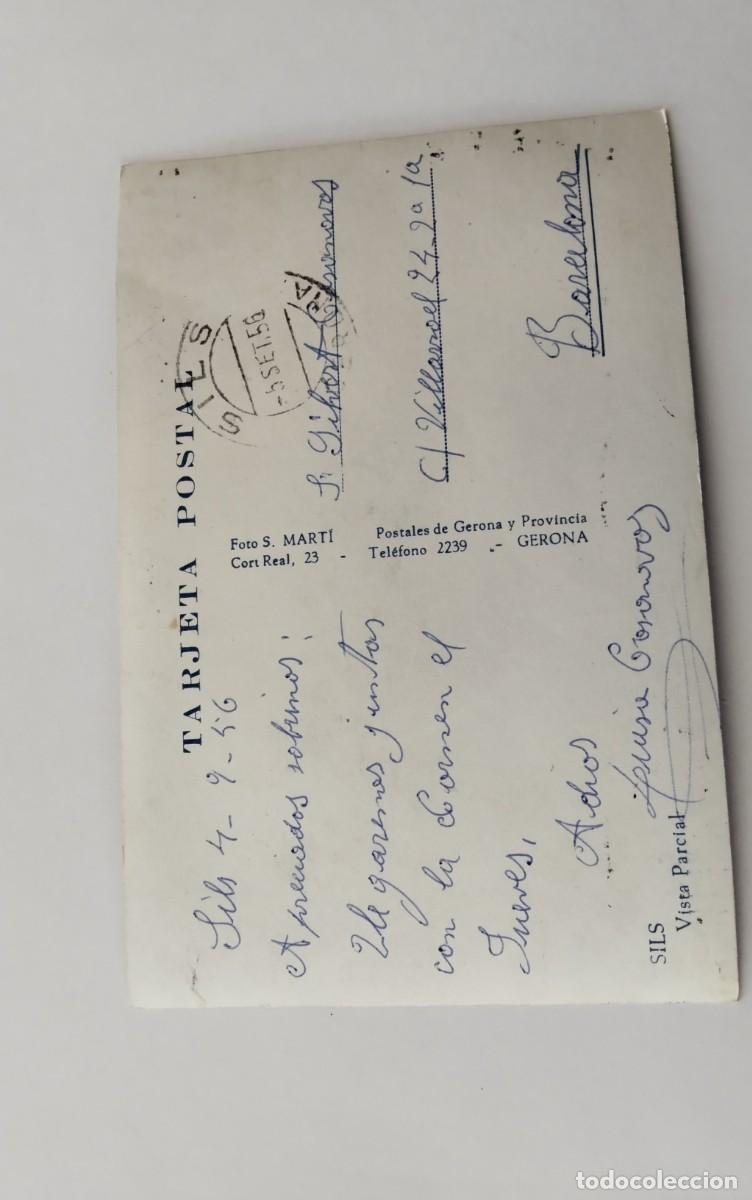 TARJETA POSTAL
Sils 4-9-56
Apreciados sobrinos:
Lle garemos juntas
con la Carmen el
Jueves,
Adios
Luisa Casanovas
SILS
Vista Parcial
Foto S. MARTÍ Postales de Gerona y Provincia
Cort Real, 23 - Teléfono 2239 .- GERONA
SILS
-5 SET.56
Sr Gibert Casanovas
C/ Villarroel 24_2º 1ª
Barcelona
todocoleccion